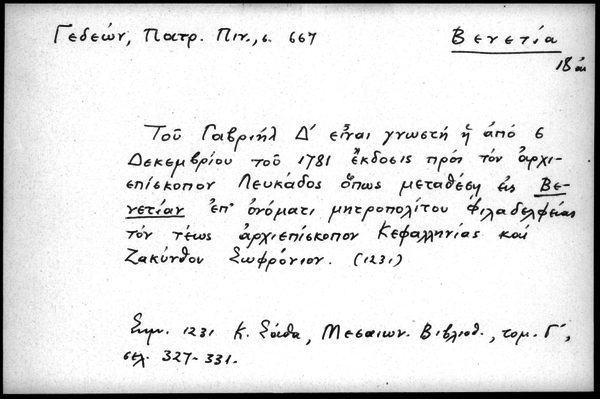 Γεδεών, Πατρ. Πιν., σ. 667
Βενετία
18 αι
Τοῦ Γαβριήλ Δ´ εἶναι γνωστή ἡ ἀπό 6
Δεκεμβρίου τοῦ 1781 ἔκδοσις πρός τόν ἀρχι-
επίσκοπον Λευκάδος ὅπως μεταθέσῃ εἰς Βε-
νετίαν ἐπ' ὀνόματι μητροπολίτου Φιλαδελφείας
τόν τέως ἀρχιεπίσκοπον Κεφαλληνίας καί
Ζακύνθου Σωφρόνιον. (1231)
Σημ. 1231 Κ. Σάθα, Μεσαιων. Βιβλιοθ., τομ. Γ´,
σελ. 327-331.